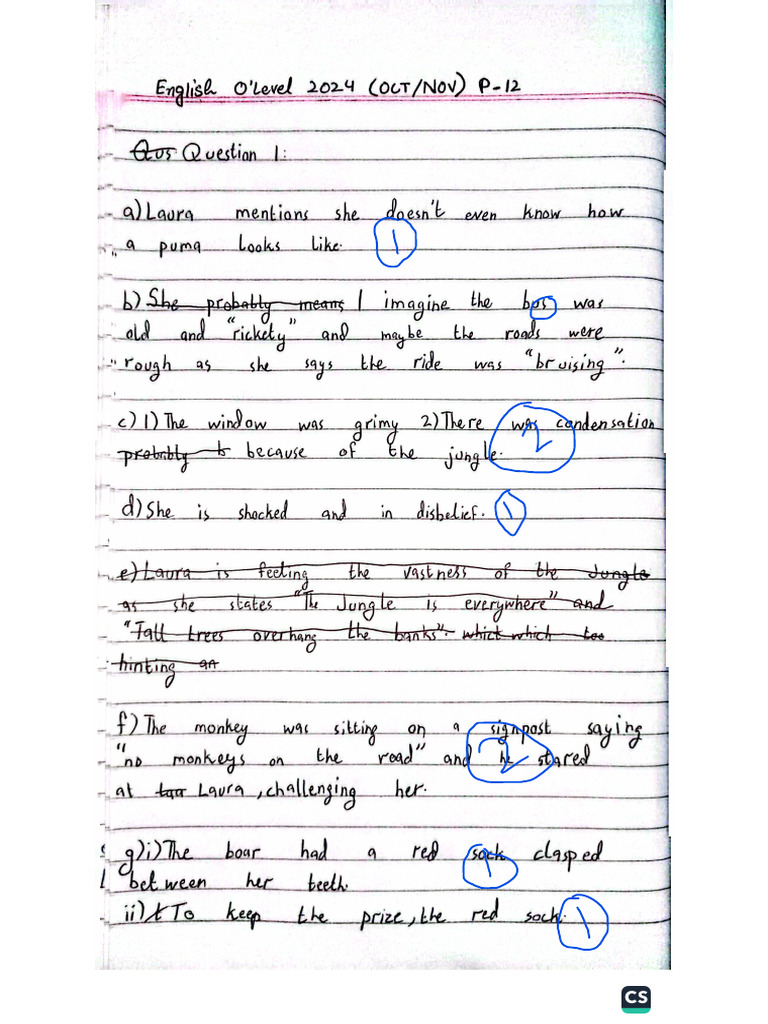 English O'Level 2024 (OCT/NOV) P-12
Qus Question 1:
a) Laura mentions she doesn't even know how
a puma looks like. 1
b) She probably means I imagine the bus was
old and "rickety" and maybe the roads were
rough as she says the ride was "bruising".
c) 1) The window was grimy 2) There was condensation 2
probably b because of the jungle.
d) She is shocked and in disbelief. 1
e) Laura is feeling the vastness of the Jungle
as she states "The Jungle is everywhere" and
"Tall trees overhang the banks". which which too
hinting an
f) The monkey was sitting on a signpost saying
"no monkeys on the road" and he stared 2
at Laura, challenging her.
g) i) The boar had a red sock clasped 1
between her teeth.
ii) t To keep the prize, the red sock. 1
CS